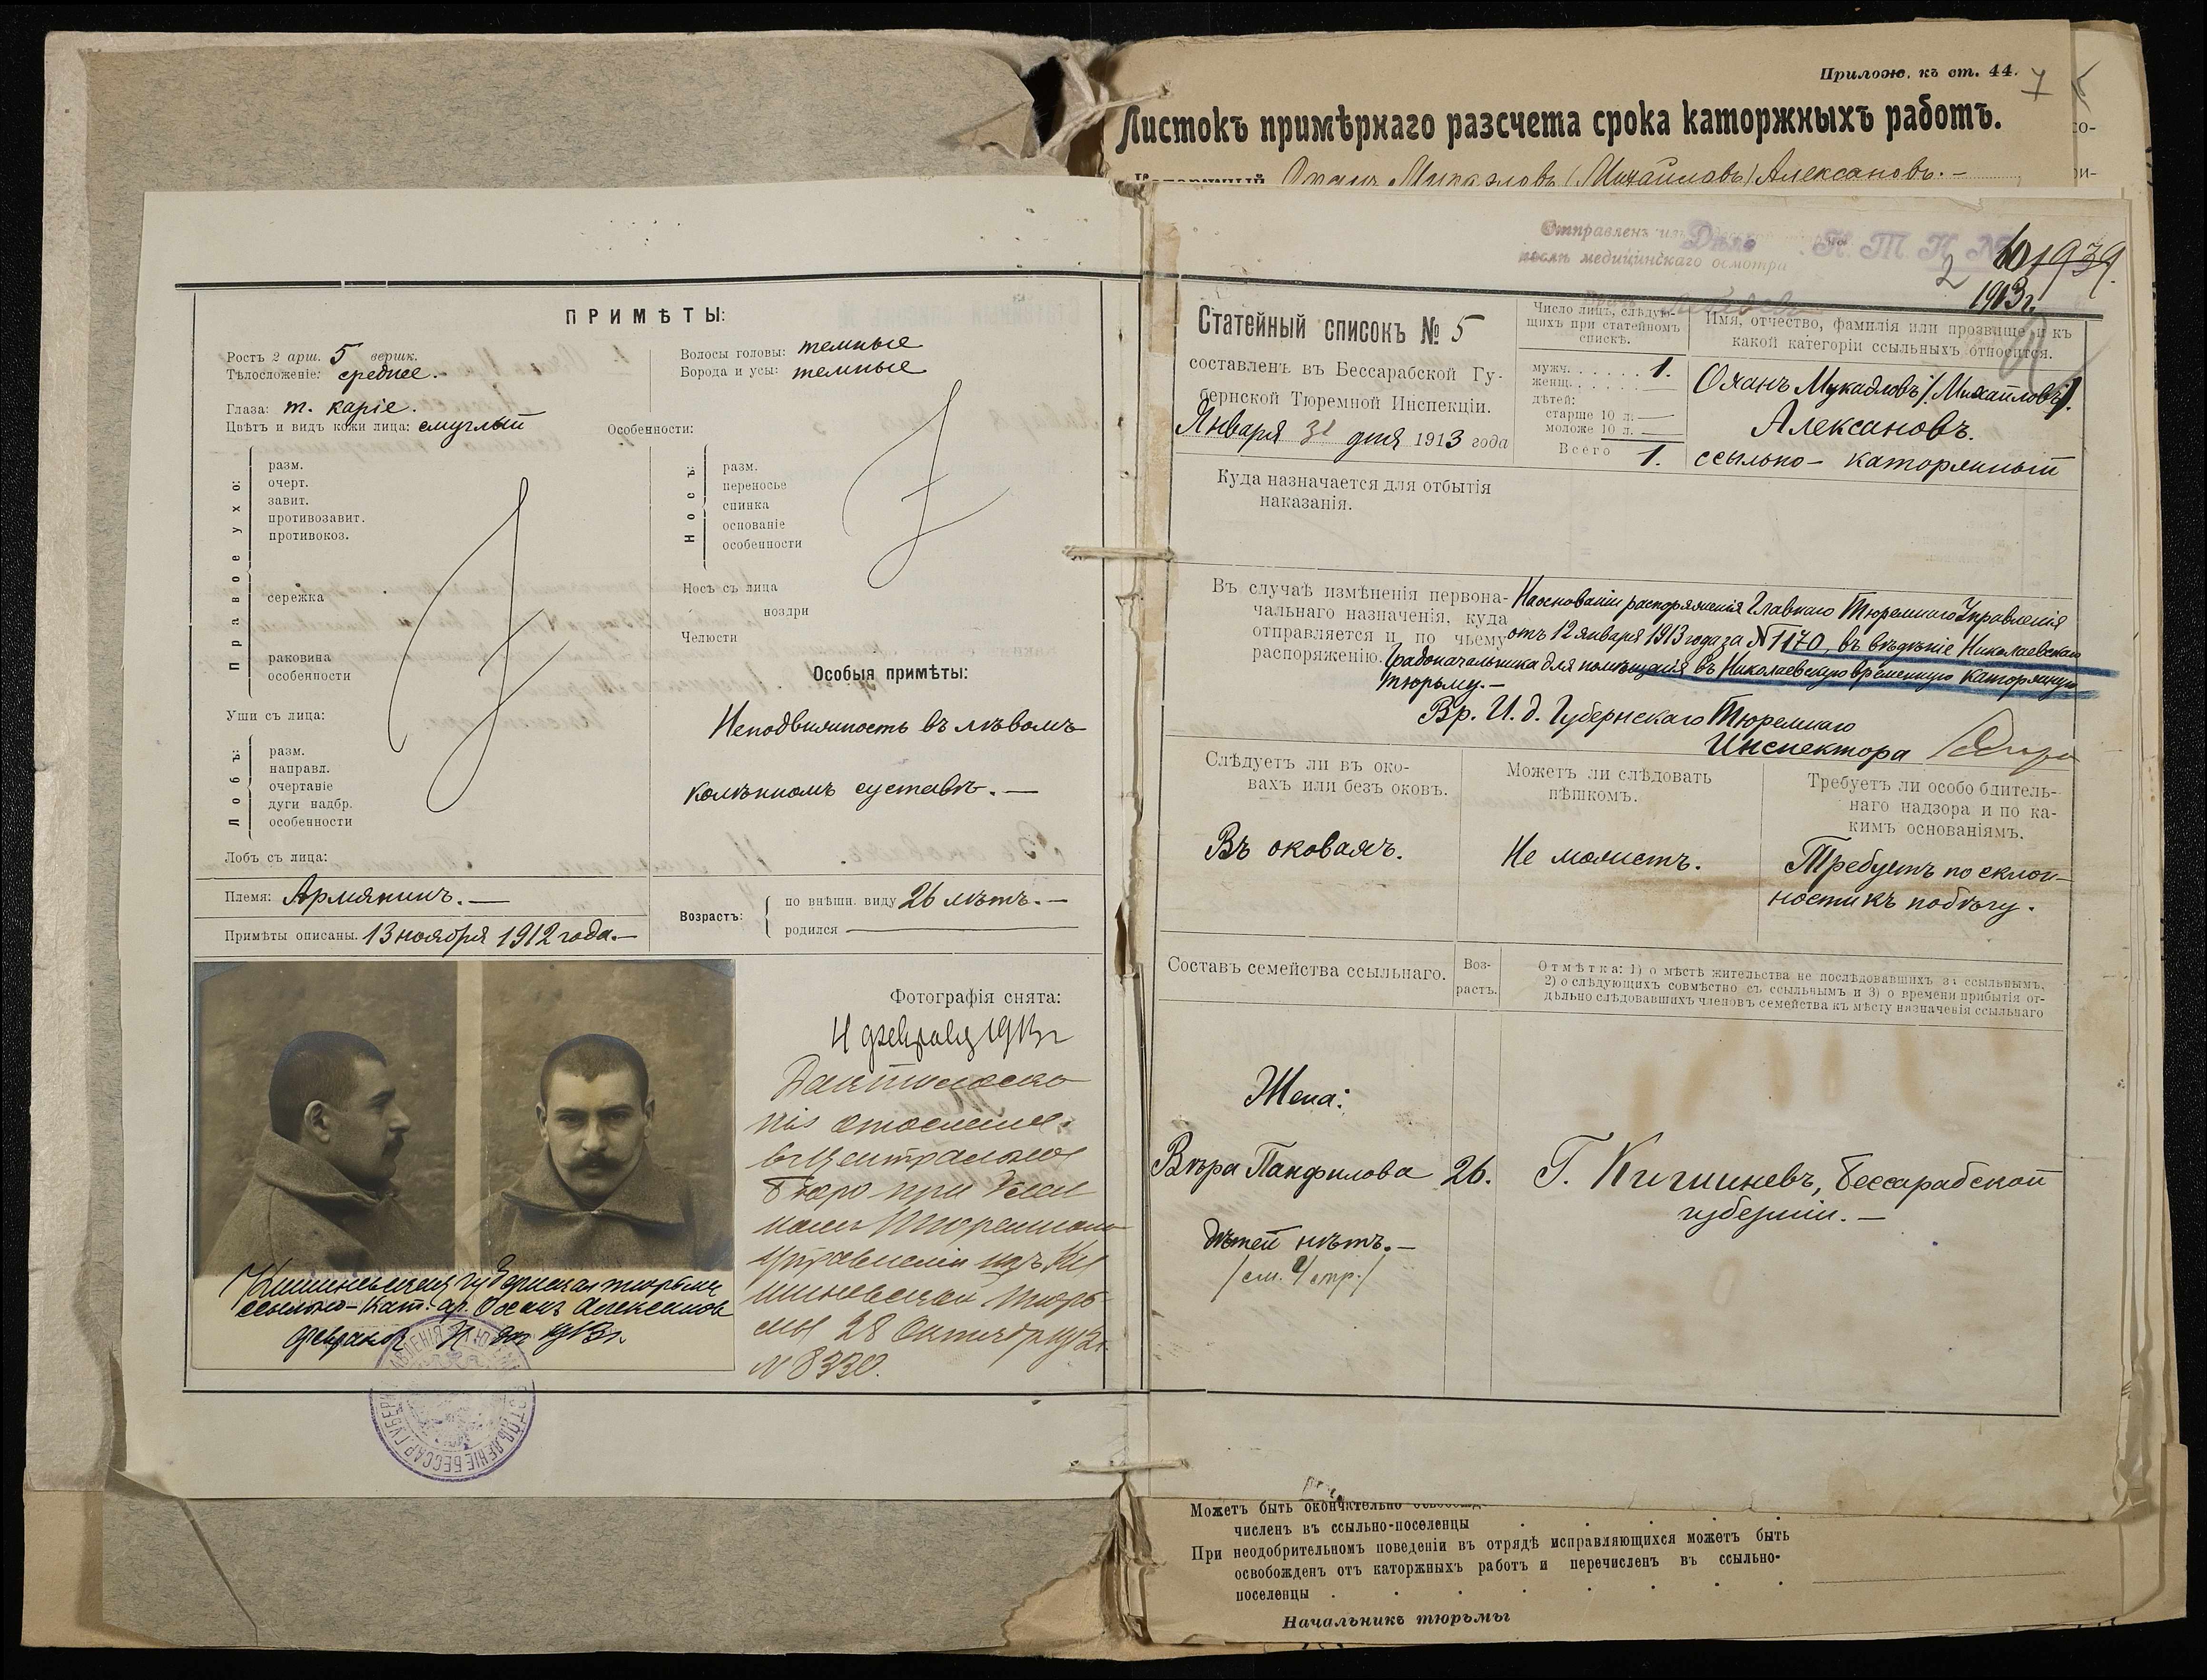 Прилож. къ ст. 44.
7
Листокъ примѣрнаго разсчета срока каторжныхъ работъ.
Оханъ Мукаэловъ (Михайловъ) Алексановъ. –
ПРИМѢТЫ:
Ростъ 2 арш. 5 вершк.
Тѣлосложеніе: среднее.
Глаза: т. каріе.
Цвѣтъ и видъ кожи лица: смуглый
Волосы головы: темные
Борода и усы: темные
Особенности:
Правое ухо:
разм.
очерт.
завит.
противозавит.
противокоз.
сережка
раковина
особенности
Уши съ лица:
Лобъ:
разм.
направл.
очертаніе
дуги надбр.
особенности
Лобъ съ лица:
Носъ:
разм.
переносье
спинка
основаніе
особенности
Носъ съ лица
ноздри
Челюсти
Особыя примѣты:
Неподвижность въ лѣвомъ
колѣнномъ суставѣ. —
Племя: Армянинъ. —
Примѣты описаны. 13 ноября 1912 года. —
Возрастъ:
по внѣшн. виду 26 лѣтъ. —
родился —
Фотографія снята:
4 февраля 1913 г
Дактилоско
пія отослана
въ Центральное
Бюро при Глав
номъ Тюремномъ
Управленіи изъ Ки
шиневской тюрь
мы 28 Октября 1912 г.
№ 8330.
Кишиневская губернская тюрьма
ссыльно-кат. ар. Оханъ Алексановъ
февраля 4 дня 1913 г.
Отправленъ изъ
послѣ медицинскаго осмотра
Дѣло Н. Т. К. №
101939
2
1913 г.
Статейный списокъ № 5
составленъ въ Бессарабской Гу-
бернской Тюремной Инспекціи.
Января 31 дня 1913 года
Число лицъ, слѣдую-
щихъ при статейномъ
спискѣ.
мужч. . . . . . . 1.
женщ. . . . . . —
дѣтей:
старше 10 л. —
моложе 10 л. —
Всего 1.
Имя, отчество, фамилія или прозвище и къ
какой категоріи ссыльныхъ относится.
Оханъ Мукаэловъ /Михайловъ/.
Алексановъ.
ссыльно – каторжный
Куда назначается для отбытія
наказанія.
Въ случаѣ измѣненія первона-
чальнаго назначенія, куда
отправляется и по чьему
распоряженію.
На основаніи распоряженія Главнаго Тюремнаго Управленія
отъ 12 января 1913 года за № 1170, въ вѣдѣніе Николаевскаго
Градоначальника для помѣщенія въ Николаевскую временную каторжную
тюрьму. —
Вр. И. д. Губернскаго Тюремнаго
Инспектора
Слѣдуетъ ли въ око-
вахъ или безъ оковъ.
Въ оковахъ.
Можетъ ли слѣдовать
пѣшкомъ.
Не можетъ.
Требуетъ ли особо бдитель-
наго надзора и по ка-
кимъ основаніямъ.
Требуетъ по склон-
ности къ побѣгу.
Составъ семейства ссыльнаго.
Воз-
растъ.
Отмѣтка: 1) о мѣстѣ жительства не послѣдовавшихъ за ссыльнымъ,
2) о слѣдующихъ совмѣстно съ ссыльнымъ и 3) о времени прибытія от-
дѣльно слѣдовавшихъ членовъ семейства къ мѣсту назначенія ссыльнаго
Жена:
Вѣра Панфилова 26. Г. Кишиневъ, Бессарабской
губерніи. —
Дѣтей нѣтъ. —
/см. 4 стр./
Можетъ быть окончательно
численъ въ ссыльно-поселенцы
При неодобрительномъ поведеніи въ отрядѣ исправляющихся можетъ быть
освобожденъ отъ каторжныхъ работъ и перечисленъ въ ссыльно-
поселенцы
Начальникъ тюрьмы